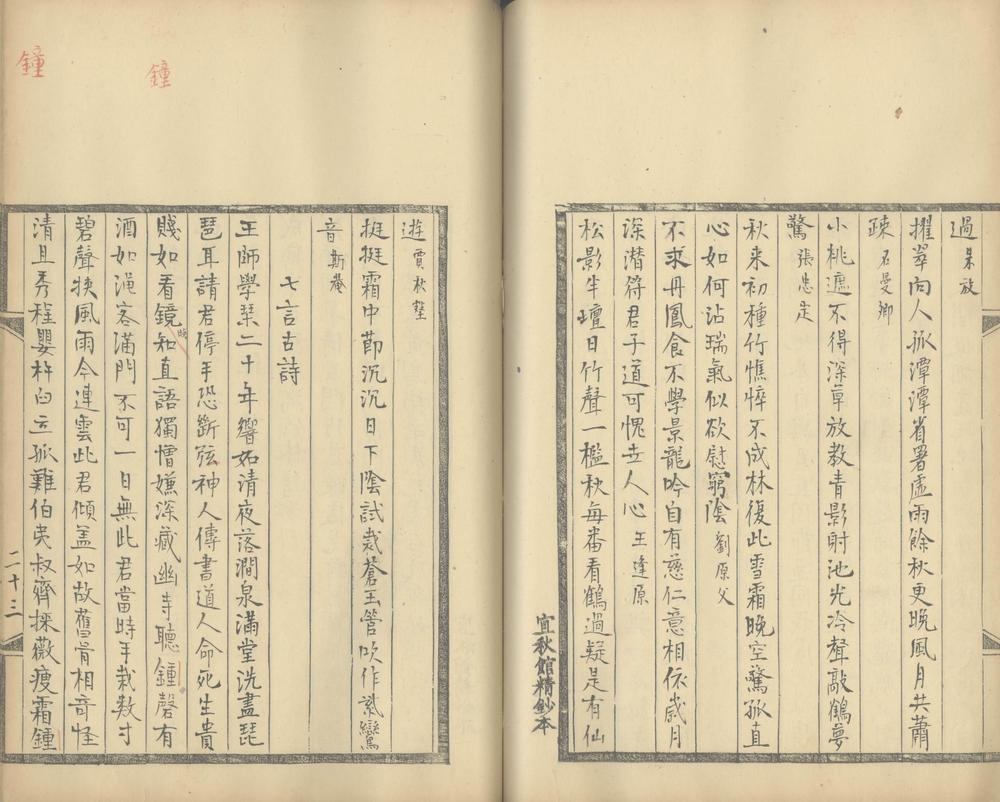 過 杲放
擢翠向人孤潭潭省署虛雨餘秋更晚風月共蕭
疎 石曼卿
小桃遮不得深草放教青影射池光冷聲敲鶴夢
驚 張忠定
秋来初種竹憔悴不成林復此雪霜晚空驚孤直
心如何沾瑞氣似欲慰窮陰 劉原父
不求丹鳳食不學景龍吟自有慈仁意相依歲月
深潜符君子道可愧古人心 王逢原
松影半壇日竹聲一檻秋每番看鶴過疑是有仙
宜秋館精鈔本
遊 賈秋壑
挺挺霜中莭沉沉日下陰試裁蒼玉管吹作紫鸞
音 斯菴
七言古詩
王師學琹二十年響如清夜落澗泉滿堂洗盡琵
琶耳請君停手恐斷弦神人傳書道人命死生貴
賤如看鏡晚知直語獨憎嫌深藏幽寺聽鍾磬有
酒如澠客滿門不可一日無此君當時手栽数寸
碧聲挾風雨今連雲此君傾盖如故舊骨相奇怪
清且秀程嬰杵臼立孤難伯夷叔齊採薇瘦霜鍾
二十三
鐘
鐘